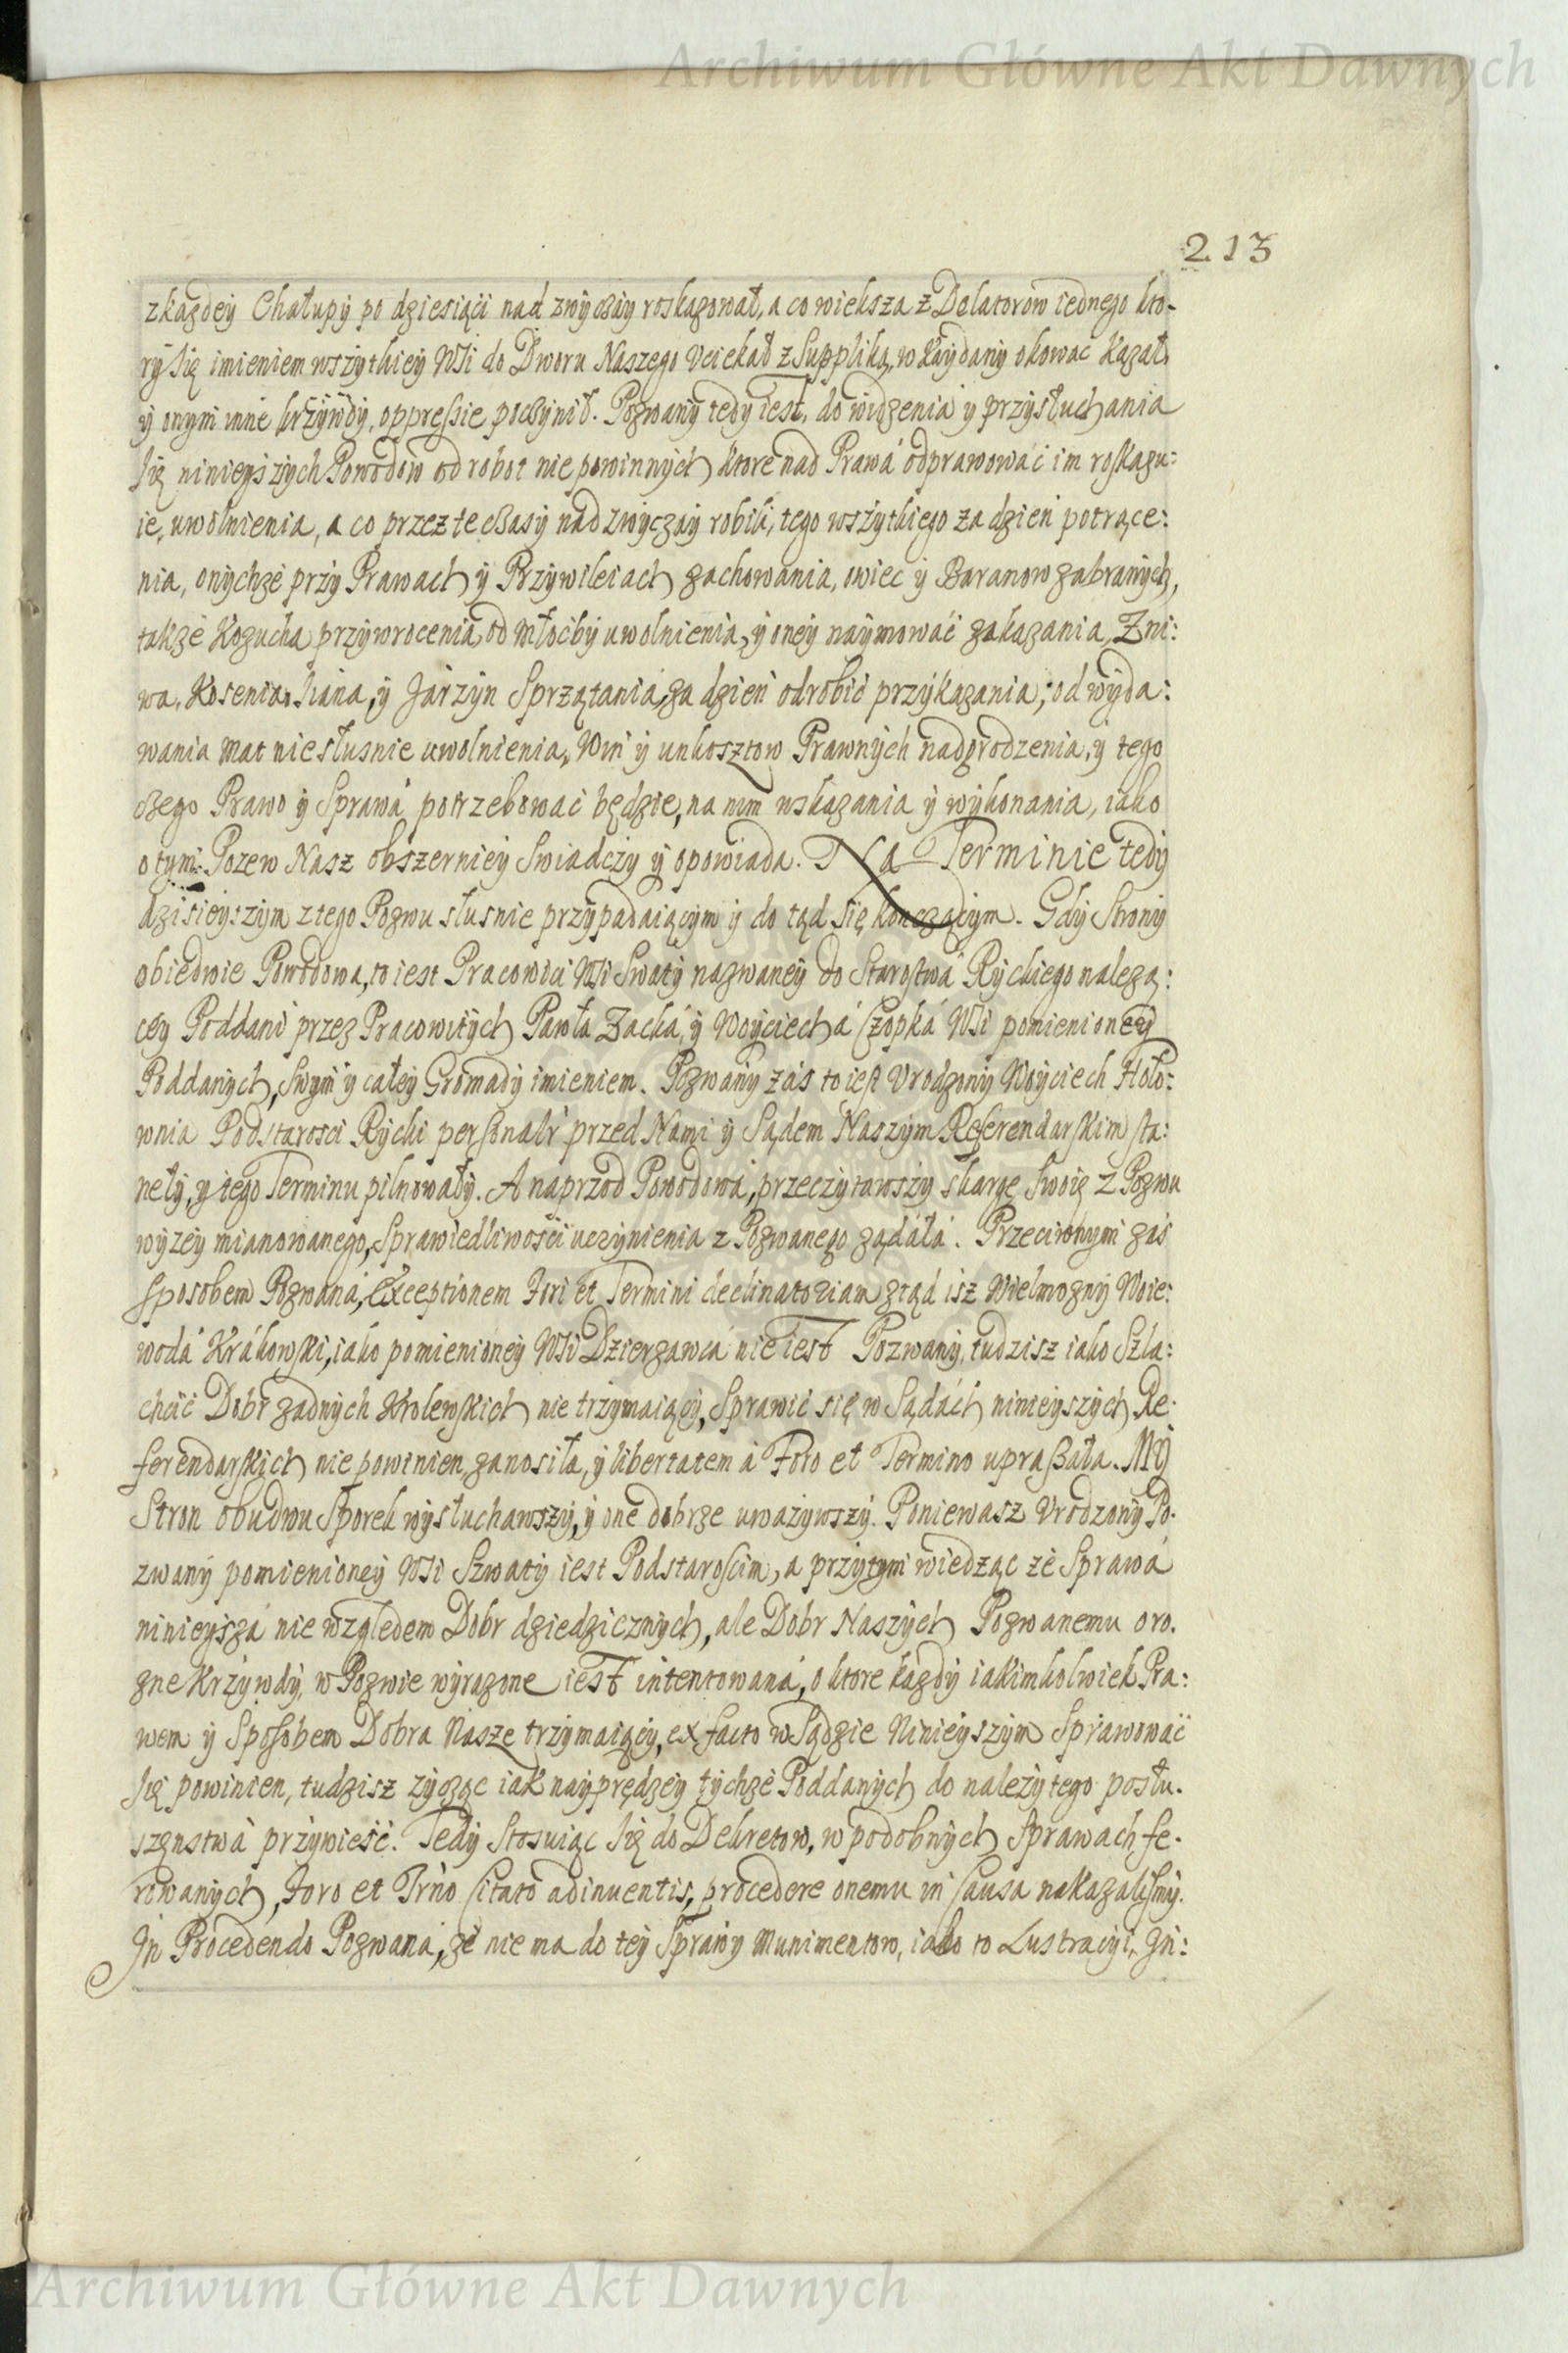 Archiwum Główne Akt Dawnych
213
zkażdey Chałupy po dziesiąci nad zwyczay roskazował, a co wieksza z Delatorow iednego kto-
ry się imieniem wszytkiey Wsi do Dworu Naszego vciekał z Suppliką, w kaydany okowac kazał,
y onym inne krzywdy, oppressie poczynił. Pozwany tedy iest, do widzenia y przysłuchania
się ninieyszych Powodow od robot nie powinnych ktore nad Prawa odprawować im roskazu=
ie, uwolnienia, a co przez te czasy nad zwyczay robili, tego wszytkiego za dzień potrące:
nia, onychże przy Prawach y Przywileiach zachowania, owiec y Baranow zabranych,
także Kożucha przywrocenia, od młoćby uwolnienia, y oney naymować zakazania, Zni:
wa, Kosenia, Siana, y Jarzyn Sprzątania, za dzień odrobić przykazania, od wyda:
wania mat niesłusnie uwolnienia, Win y unkosztow Prawnych nadgrodzenia, y tego
czego Prawo y Sprawa potrzebować będzie, na nim wskazania y wykonania, iako
o tym Pozew Nasz obszerniey Swiadczy y opowiada. Na Terminie tedy
dzisieyszym z tego Pozwu słusnie przypadaiącym y do tąd się kończącym. Gdy Strony
obiedwie Powodowa, to iest Pracowici Wsi Swaty nazwaney do Starostwa Ryckiego należą:
cey Poddani przez Pracowitych Pawła Zacka, y Woyciecha Czopka Wsi pomienioney
Poddanych, Swym y całey Gromady imieniem. Pozwany zaś to iest Vrodzony Woyciech Hoło:
wnia Podstarosci Rycki personalr przed Nami y Sądem Naszym Referendarskim sta:
neły, y tego Terminu pilnowały. A naprzod Powodowa, przeczytawszy skargę Swoię z Pozwu
wyzey mianowanego, Sprawiedliwości uczynienia z Pozwanego żądała. Przeciwnym zaś
sposobem Pozwana, Exceptionem Fori et Termini declinatoriam ztąd isz Wielmozny Woie:
woda Krakowski, iako pomienioney Wsi Dzierzawca nie iest Pozwany, tudzisz iako Szla:
chcic Dobr zadnych Krolewskich nie trzymaiący, Sprawić się w Sądach ninieyszych Re-
ferendarskich nie powinien, zanosiła, y libertatem à Foro et Termino upraszała. My
Stron obudwu Sporek wysłuchawszy, y one dobrze uważywszy. Poniewasz Vrodzony Po-
zwany pomienioney Wsi Szwaty iest Podstarościm, a przytym wiedząc że Sprawa
ninieysza nie względem Dobr dziedzicznych, ale Dobr Naszych Pozwanemu o ro.
zne Krzywdy, w Pozwie wyrazone iest intentowana, o ktore każdy iakimkolwiek Pra:
wem y Sposobem Dobra Nasze trzymaiący, ex facto w Sądzie Ninieyszym Sprawować
się powinien, tudzisz życząc iak nayprędzey tychże Poddanych do należytego posłu-
szenstwa przywieść. Tedy Stosuiąc się do Dekretow, w podobnych Sprawach fe-
rowanych, Foro et Trno Citato adinuentis, procedere onemu in Causa nakazalismy.
In Procedendo Pozwana, że nie ma do tey Sprawy Munimentow, iako to Lustracyi, In:
Archiwum Główne Akt Dawnych